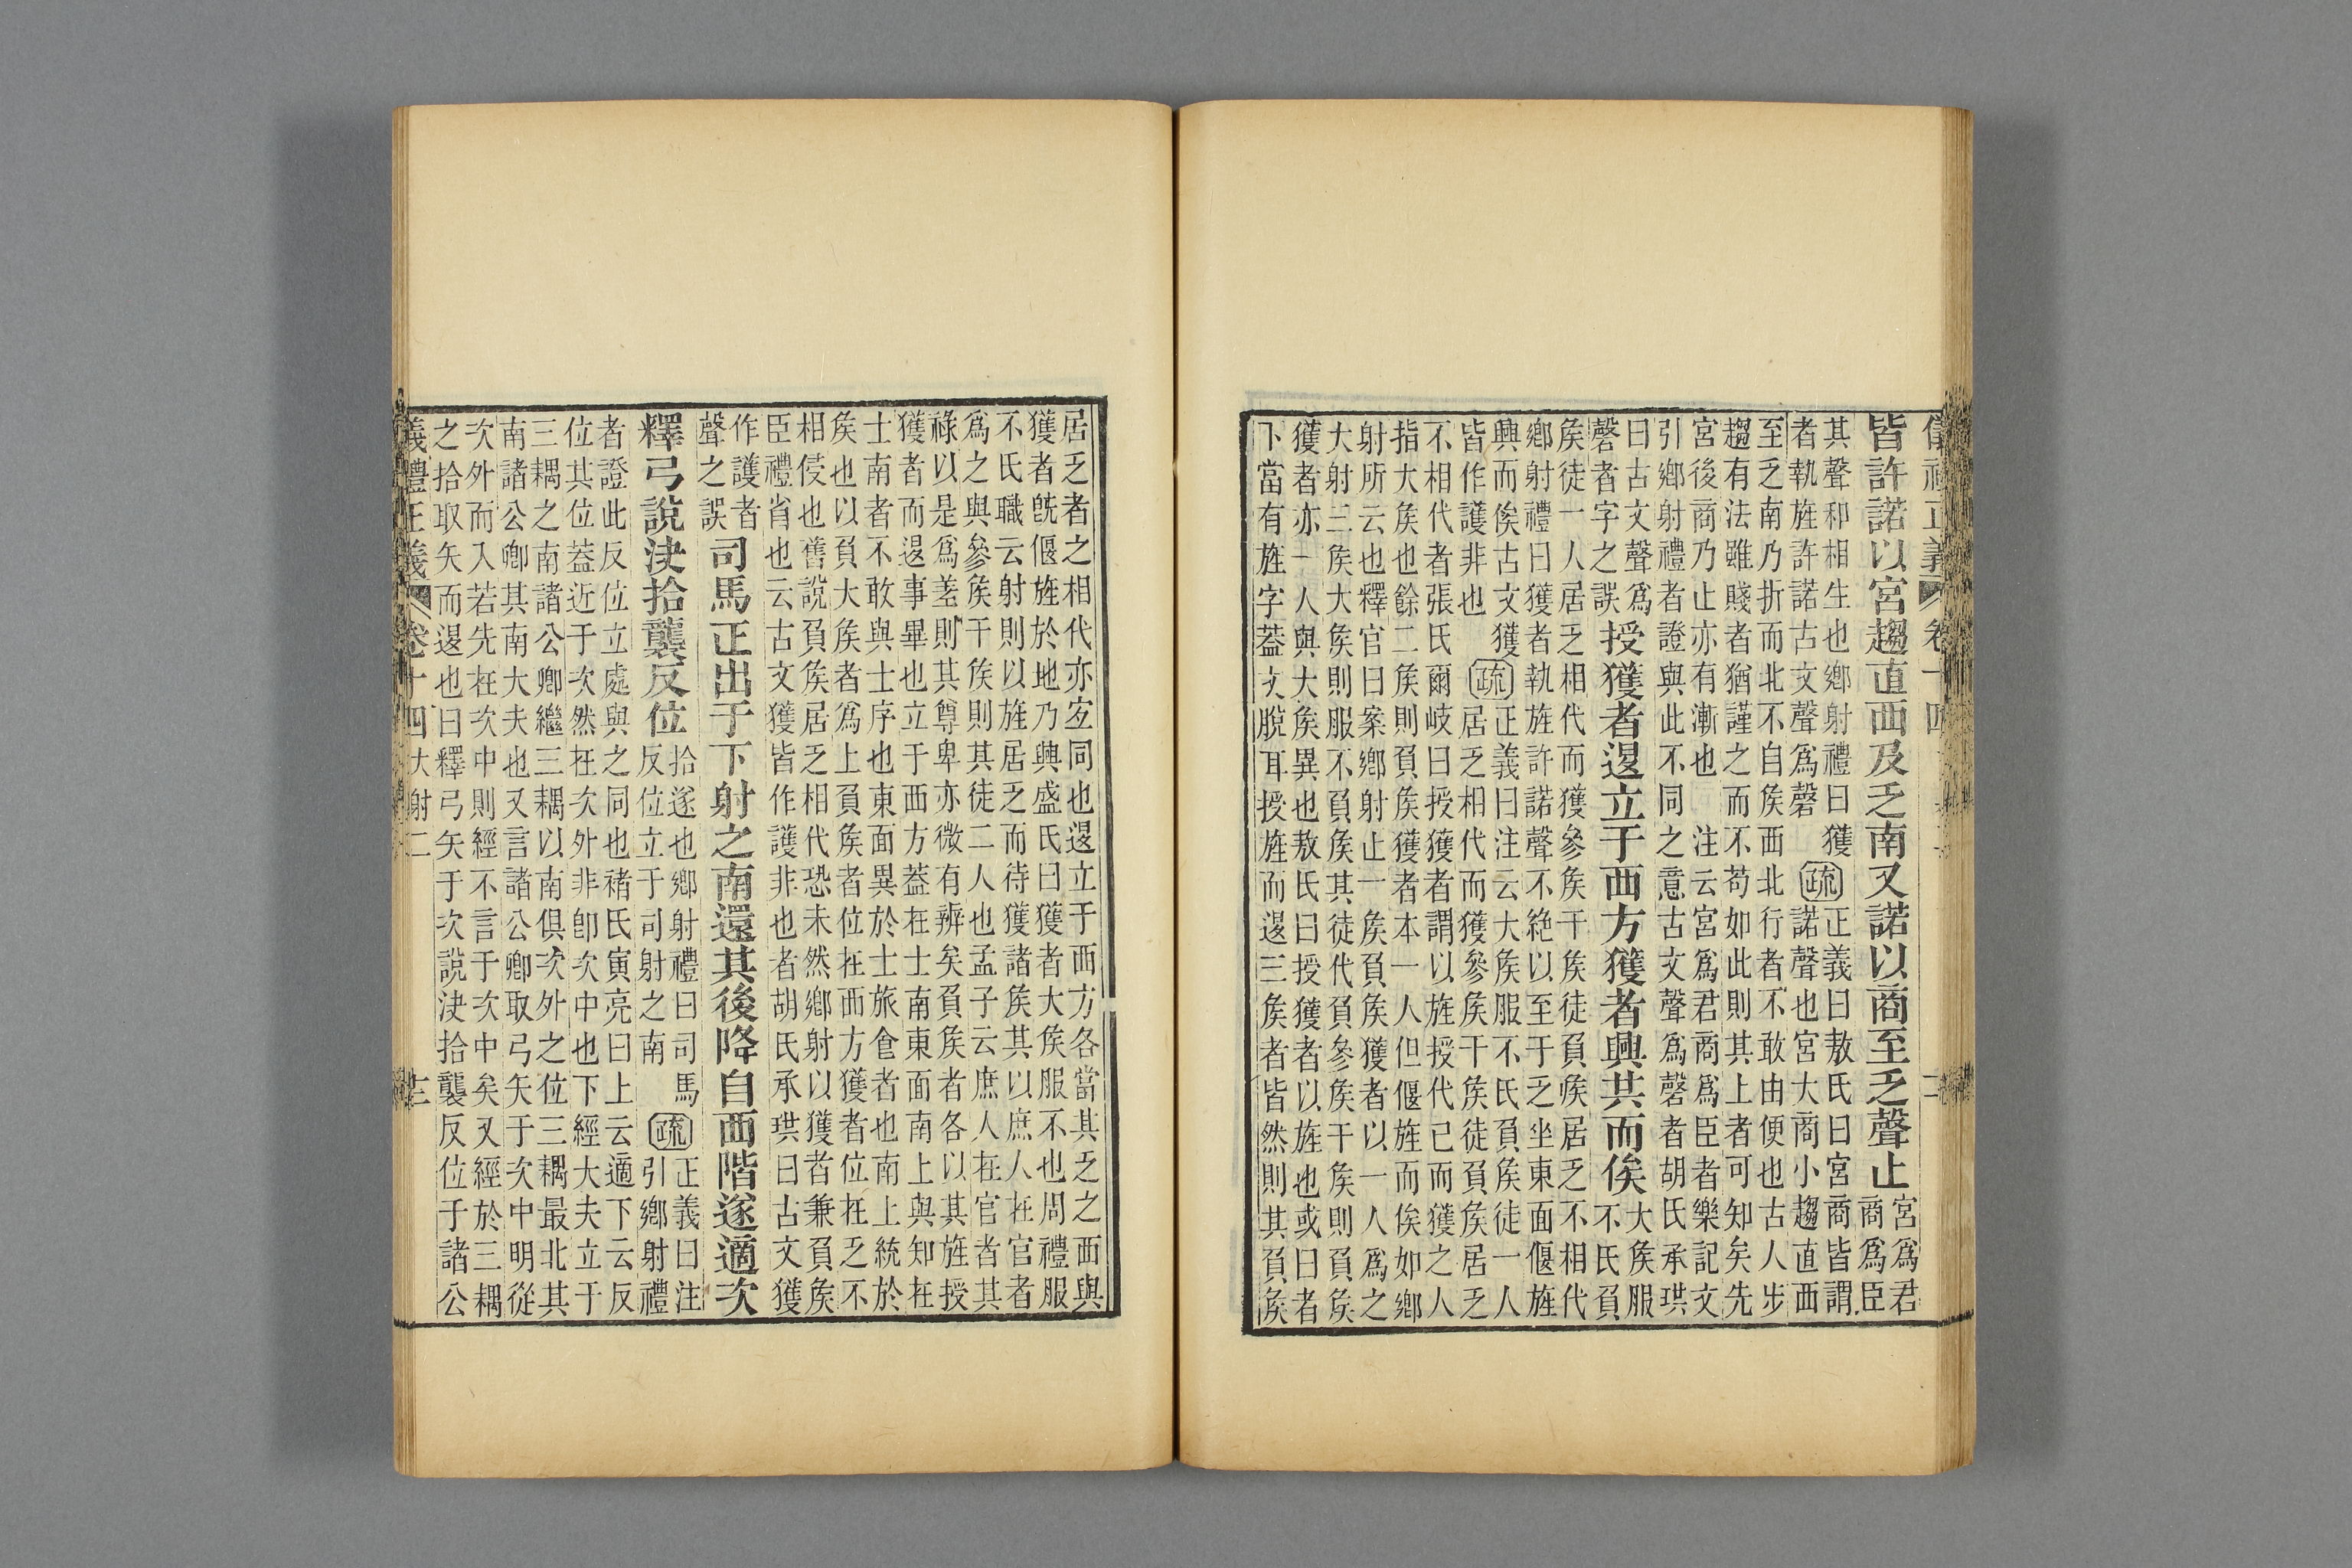 儀禮正義 卷十四
皆許諾以宮趨直西及乏南又諾以商至乏聲止 宮爲君
商爲臣
其聲和相生也鄉射禮曰獲
者執旌許諾古文聲爲磬
疏 正義曰敖氏曰宮商皆謂
諾聲也宮大商小趨直西
至乏南乃折而北不自矦西北行者不敢由便也古人步
趨有法雖賤者猶謹之而不苟如此則其上者可知矣先
宮後商乃止亦有漸也 注云宮爲君商爲臣者樂記文
引鄉射禮者證與此不同之意古文聲爲磬者胡氏承珙
曰古文聲爲
磬者字之誤
授獲者退立于西方獲者興共而俟 大矦服
不氏負
矦徒一人居乏相代而獲參矦干矦徒負矦居乏不相代
鄉射禮曰獲者執旌許諾聲不絶以至于乏坐東面偃旌
興而俟古文獲
皆作護非也
疏 正義曰注云大矦服不氏負矦徒一人
居乏相代而獲參矦干矦徒負矦居乏
不相代者張氏爾岐曰授獲者謂以旌授代已而獲之人
指大矦也餘二矦則負矦獲者本一人但偃旌而俟如鄉
射所云也釋官曰案鄉射止一矦負矦獲者以一人爲之
大射三矦大矦則服不負矦其徒代負參矦干矦則負矦
獲者亦一人與大矦異也敖氏曰授獲者以旌也或曰者
下當有旌字葢文脫耳授旌而退三矦者皆然則其負矦
居乏者之相代亦宐同也退立于西方各當其乏之西與
獲者旣偃旌於地乃興盛氏曰獲者大矦服不也周禮服
不氏職云射則以旌居乏而待獲諸矦其以庶人在官者
爲之與參矦干矦則其徒二人也孟子云庶人在官者其
祿以是爲差則其尊卑亦微有辨矣負矦者各以其旌授
獲者而退事畢也立于西方葢在士南東面南上與知在
士南者不敢與士序也東面異於士旅食者也南上統於
矦也以負大矦者爲上負矦者位在西方獲者位在乏不
相侵也舊說負矦居乏相代恐未然鄉射以獲者兼負矦
臣禮省也云古文獲皆作護非也者胡氏承珙曰古文獲
作護者
聲之誤
司馬正出于下射之南還其後降自西階遂適次
釋弓說決拾襲反位 拾遂也鄉射禮曰司馬
反位立于司射之南
疏 正義曰注
引鄉射禮
者證此反位立處與之同也褚氏寅亮曰上云適下云反
位其位葢近于次然在次外非卽次中也下經大夫立于
三耦之南諸公卿繼三耦以南俱次外之位三耦最北其
南諸公卿其南大夫也又言諸公卿取弓矢于次中明從
次外而入若先在次中則經不言于次中矣又經於三耦
之拾取矢而退也曰釋弓矢于次說決拾襲反位于諸公
儀禮正義 卷十四 大射二